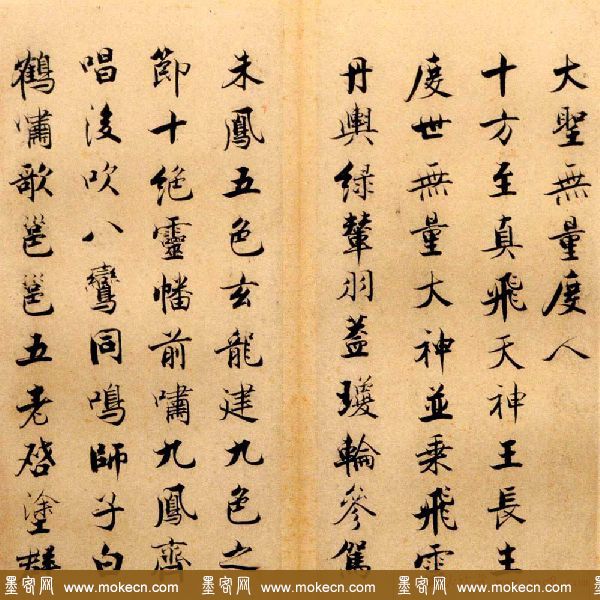 大聖無量度人
十方至真飛天神王長生
度世無量大神並乗飛雲
丹輿緑輦羽蓋瓊輪參駕
朱鳳五色玄龍建九色之
節十絶靈幡前嘯九鳳齊
唱後吹八鸞同鳴師子白
鶴嘯歌邕邕五老啓塗
墨客网 www.mokecn.com 墨客网 www.mokecn.com 墨客网 www.mokecn.com